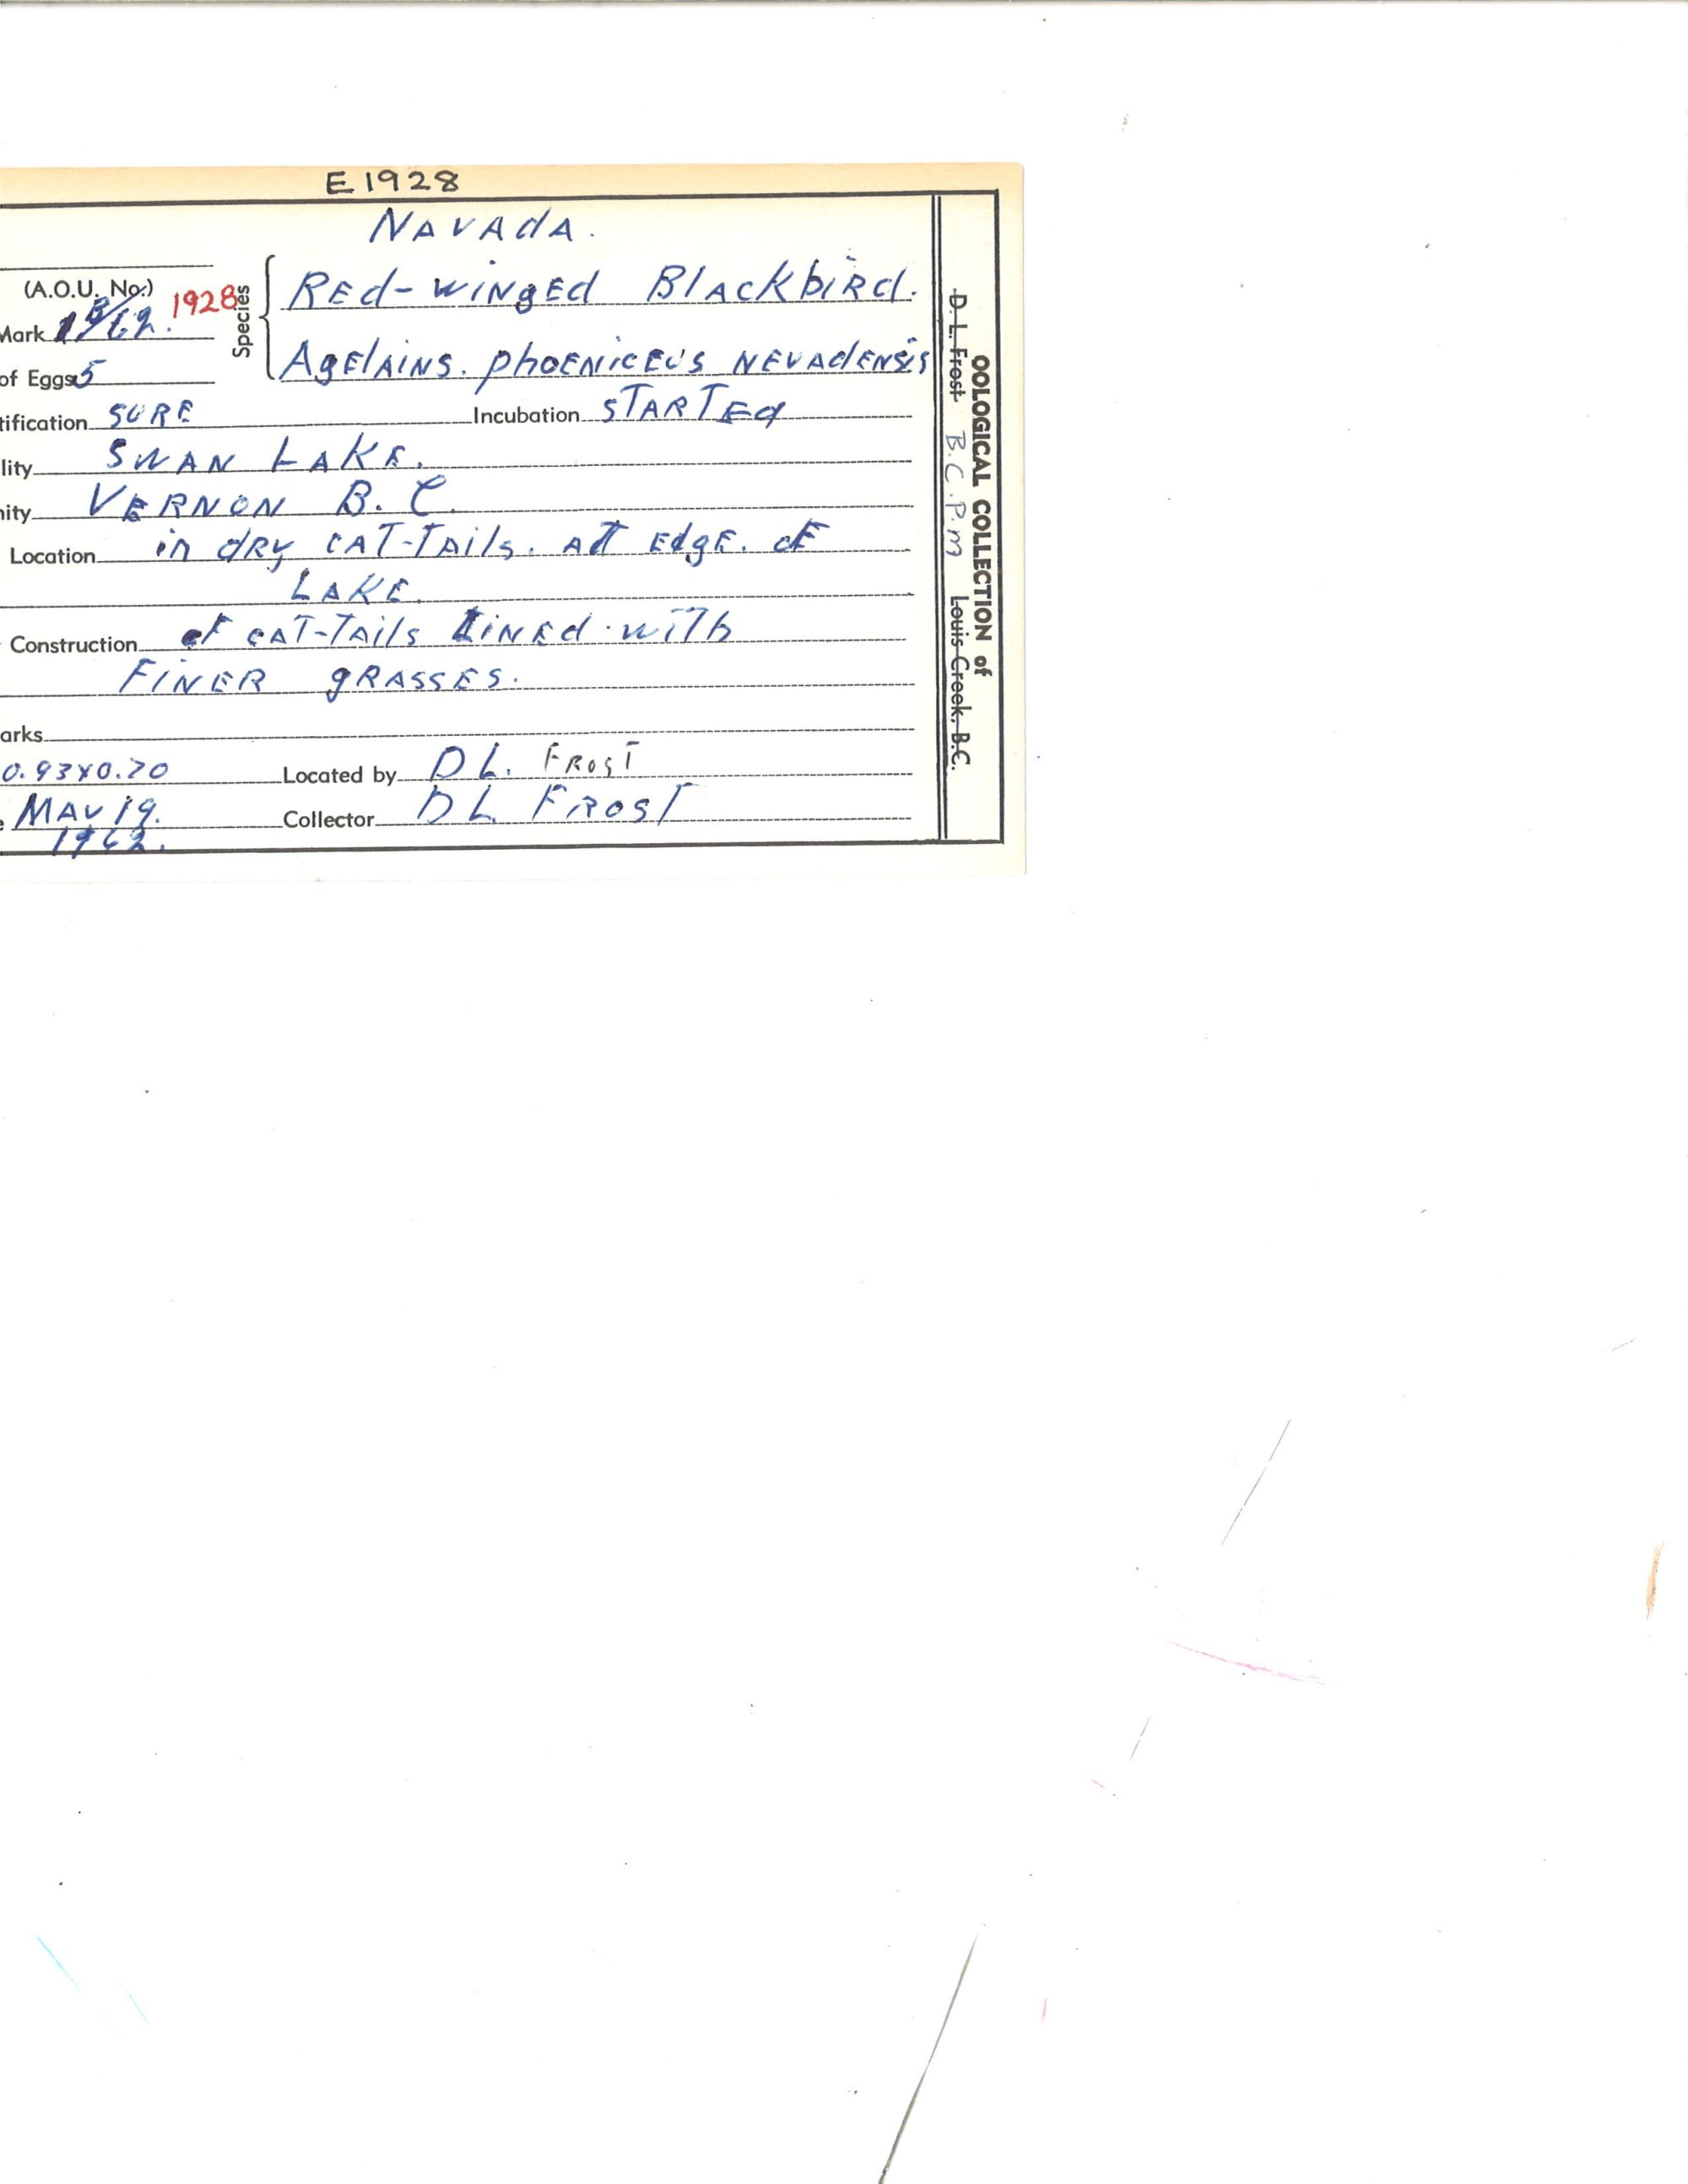 E1928
NAVAdA.
(A.O.U. No.) 1928 Species
REd-wiNgEd BlAckbiRd.
Mark
AgElAiNS. phOENicEUS NEVAdENSiS
of Eggs 5
tification SURE Incubation STARTEd
lity SWAN LAKE.
nity VERNON B.C.
Location in dRy CAT-TAils. AT EdgE. OF
LAKE.
Construction OF CAT-TAils LiNEd with
FiNER gRASSES.
arks
0.93X0.70 Located by D L. FROST
e MAY 19. Collector D L FROST
1962.
OOLOGICAL COLLECTION of
D. L. Frost B.C.P.M Louis Creek, B.C.